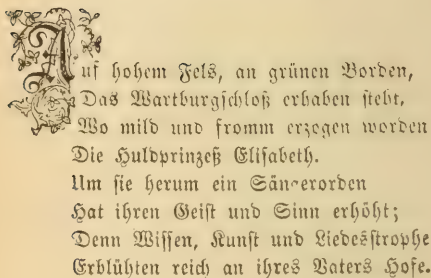 Auf hohem Fels, an grünen Borden,
Das Wartburgschloß erhaben steht,
Wo mild und fromm erzogen worden
Die Huldprinzeß Elisabeth.
Um sie herum ein Sängerorden
Hat ihren Geist und Sinn erhöht;
Denn Wissen, Kunst und Liebesstrophe
Erblühten reich an ihres Vaters Hofe.